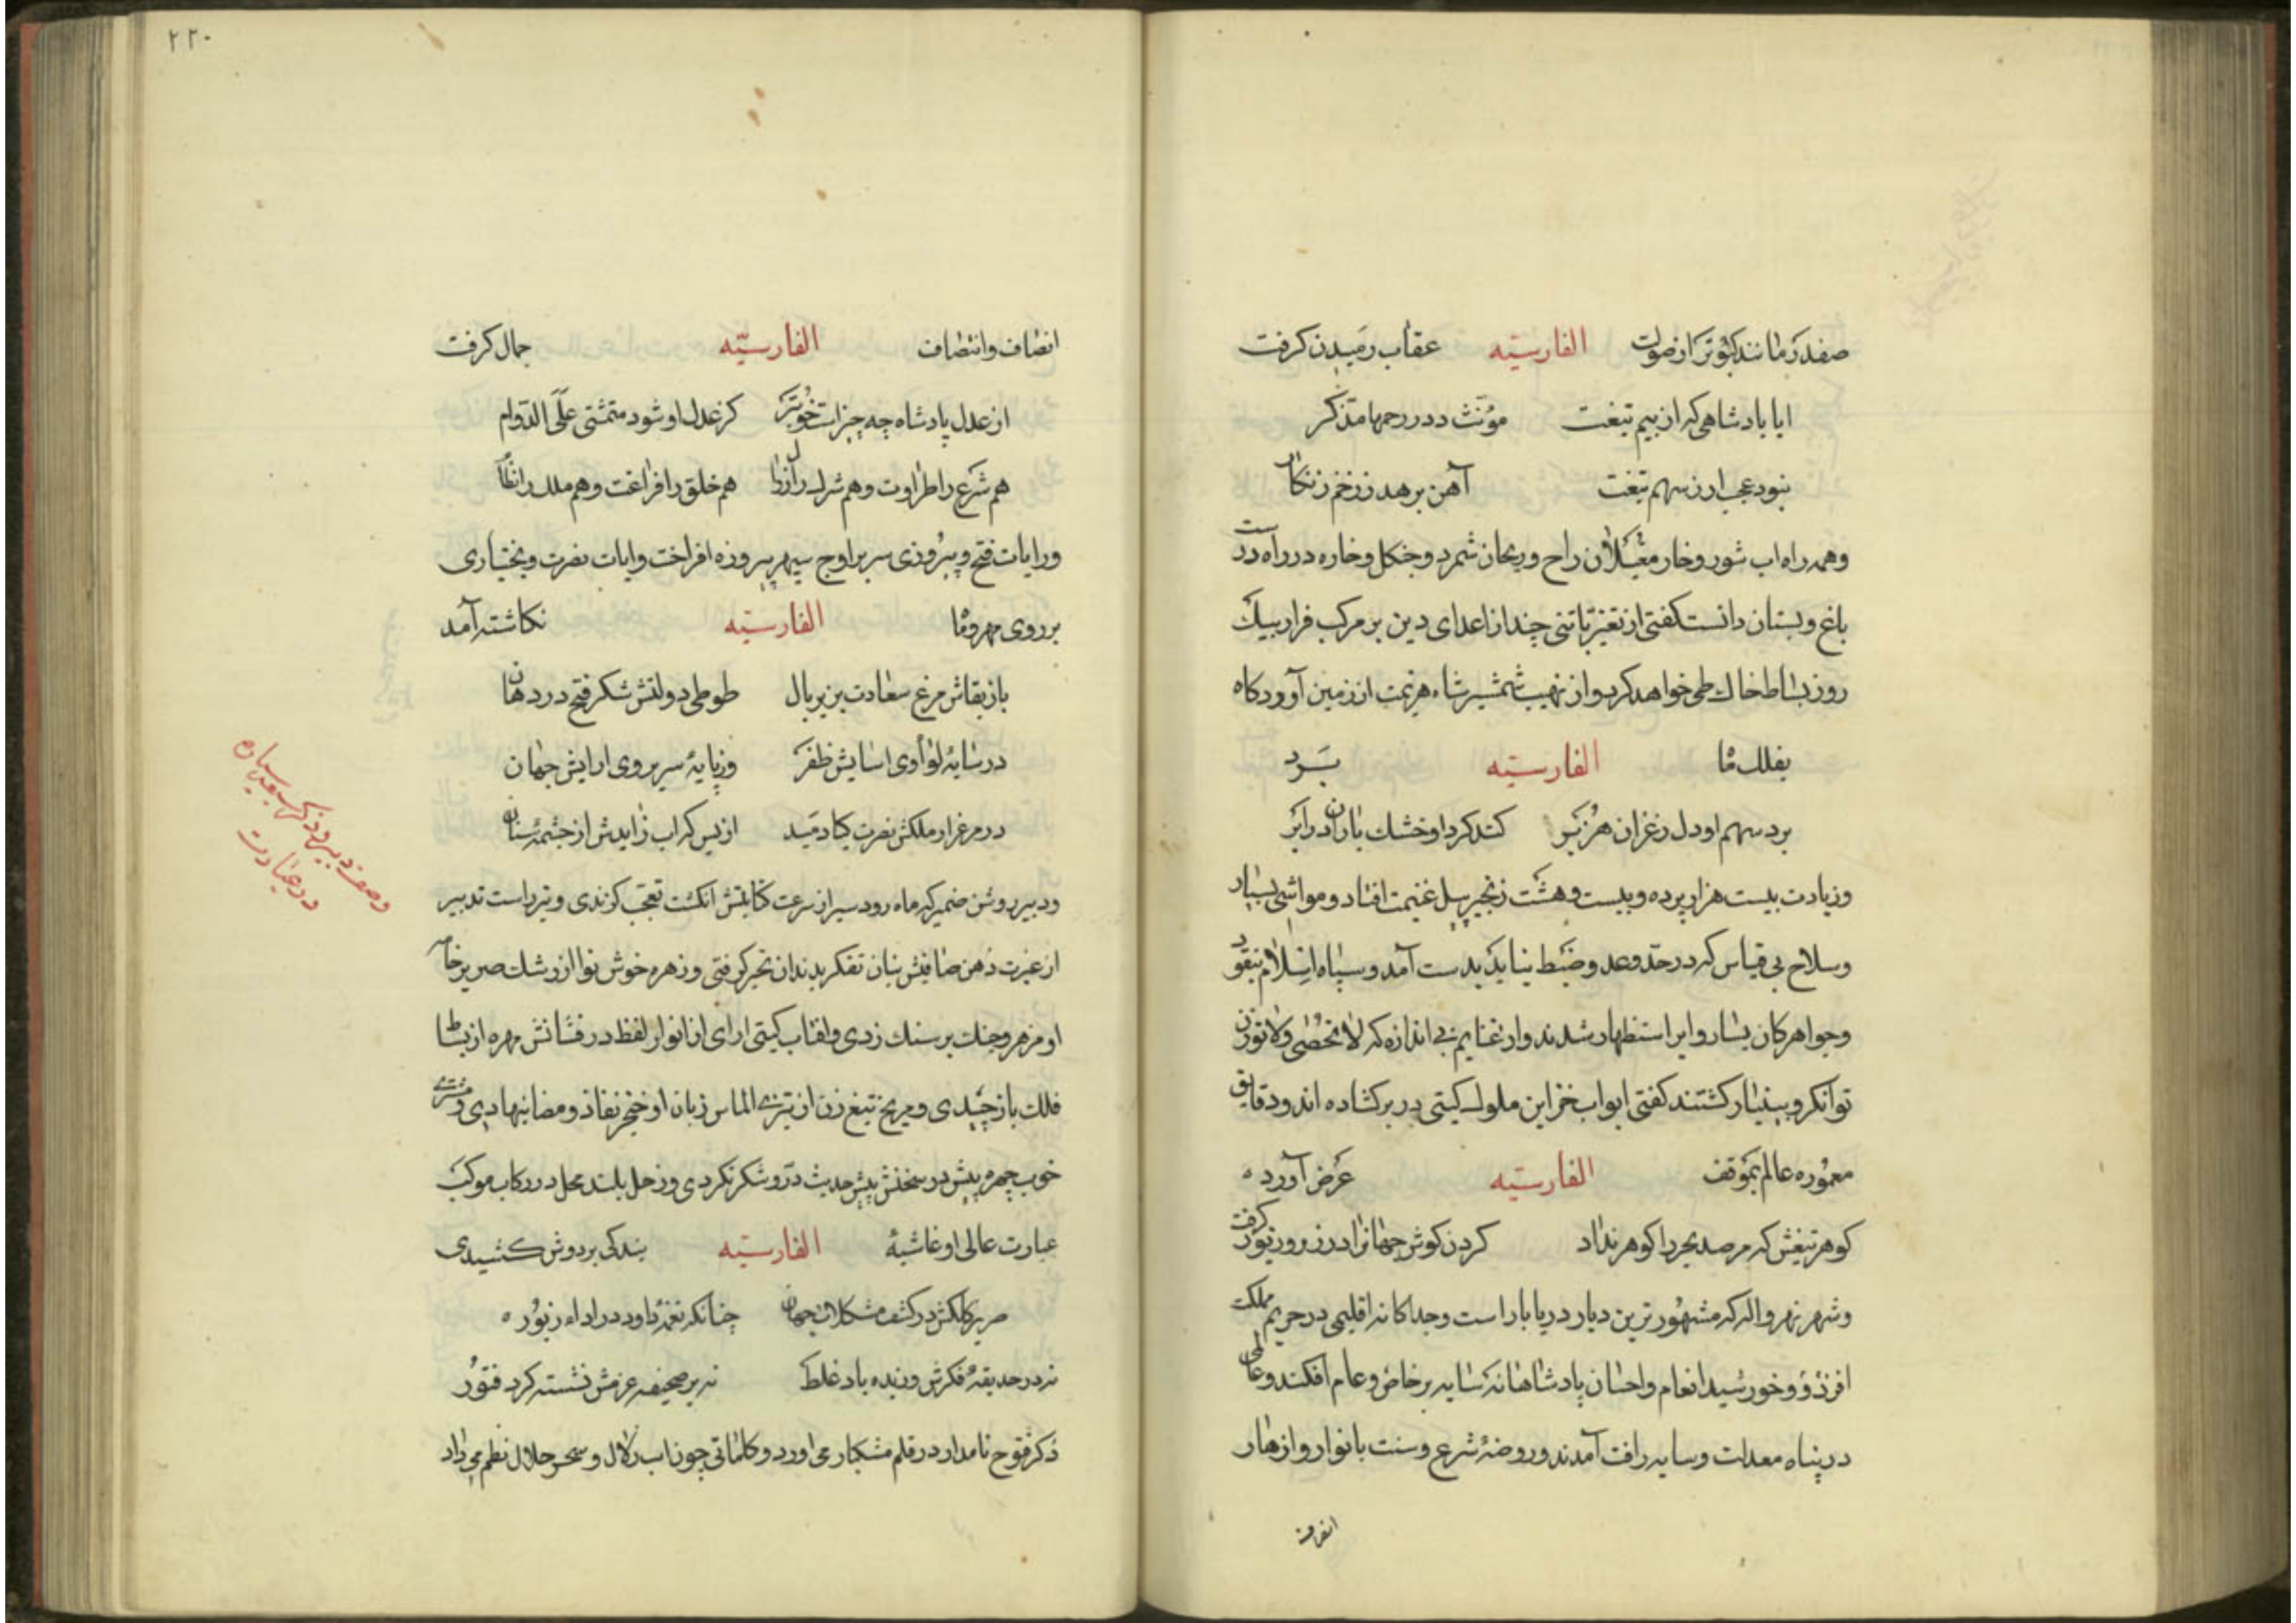 صفدر مانند کبوتر از صولت الفارسیّه عقاب رمیدن کرفت
ایا پادشاهی که از بیم تیغت مؤنث دد در رحمها مذکر
نبود عجب ار ز سهم تیغت آهن برهد ز زخم زنکار
وهمه راه اب شور و خار مغیلان راح و ریحان شمرد و جنکل و خاره در راه درست
باغ و بستان دانست کفتی از تغیز تا تنی چند از اعدای دین بر مرکب فرار بیک
روز بساط خاک طی خواهد کرد و از نهیب شمشیر شاه هزیمت از زمین آوردکاه
بفلک ما الفارسیّه برد
برد سهم او دل ز غران هژبر کند کرد او خشک باران در ابر
وزیادت بیست هزار برده و بیست و هشت زنجیر پیل غنیمت افتاد و مواشی بسیار
وسلاح بی قیاس که در حدّ و عد و ضبط نیاید بدست آمد و سپاه اسلام بنقود
وجواهر کان یسار وایر استظهار شدند و از غنایم بی اندازه که لا تحصی ولا توزن
توانکر و بسیار کشتند کفتی ابواب خزاین ملوک کیتی در برکشاده اند و دقایق
معموره عالم بموقف الفارسیّه عرض آورده
کوهر تیغش که مر صد بحر را کوهر نداد کردن کوش جهانرا در زر و زیور کرفت
وشهر نهرواله که مشهور ترین دیار دریا بار است و جداکانه اقلیمی در حریم مملکت
افزود و خورشید انعام و احسان پادشاهانه سایه بر خاص و عام افکند و عالمی
در پناه معدلت و سایه رافت آمدند و روضه شرع و سنت بانوار و ازهار
۲۲۰
انصاف و انتصاف الفارسیّه جمال کرفت
از عدل پادشاه چه چیز است خوبتر کز عدل او شود متمشی علی الدوام
هم شرع را طراوت و هم شرک را زوال هم خلق را فراغت و هم ملک را نظام
ورایات فتح و پیروزی سر بر اوج سپهر پیروزه افراخت و ایات نصرت و بختیاری
بر روی مهر و ماه الفارسیّه نکاشته آمد
باز بقاش مرغ سعادت بزیر بال طوطی دولتش شکر فتح در دهان
در سایه لوا وی اسایش ظفر وز پایه سریر وی ارایش جهان
در مرغزار ملکش نصرت کیا دمید از بس که اب زایدش از چشمه سنان
ودبیر روشن ضمیر که ماه رود سیر از سرعت کتابتش انکشت تعجب کزندی و تیر راست تدبیر
از غیرت ذهن صافیش بنان تفکر بدندان تحیر کرفتی و زهره خوش نوا از رشک صریر خامه
او مزهر و چنک بر سنک زدی و افتاب کیتی ارای از انوار لفظ در فشانش مهره از بساط
فلک باز چیدی و مریخ تیغ زن از تیزی الماس زبان او خنجر نفاذ و مضا بنهادی و مشتری
خوب چهره پیش در سخنش پیش حدیث در و شکر نکردی و زحل بلند محل در رکاب موکب
عبارت عالی او غاشیه الفارسیّه بندکی بر دوش کشیدی
صریر کلکش در کشف مشکلات جهان چنانکه نغمه داود در اداء زبور
نه در حدیقه فکرش وزیده باد غلط نه بر صحیفه عزمش نشسته کرد فتور
ذکر فتوح نامدار در قلم مشکبار می اورد و کلماتی چون اب زلال و سحر حلال نظم می داد
وصف دبیر و ذکر سبعه سیاره
در عبارت